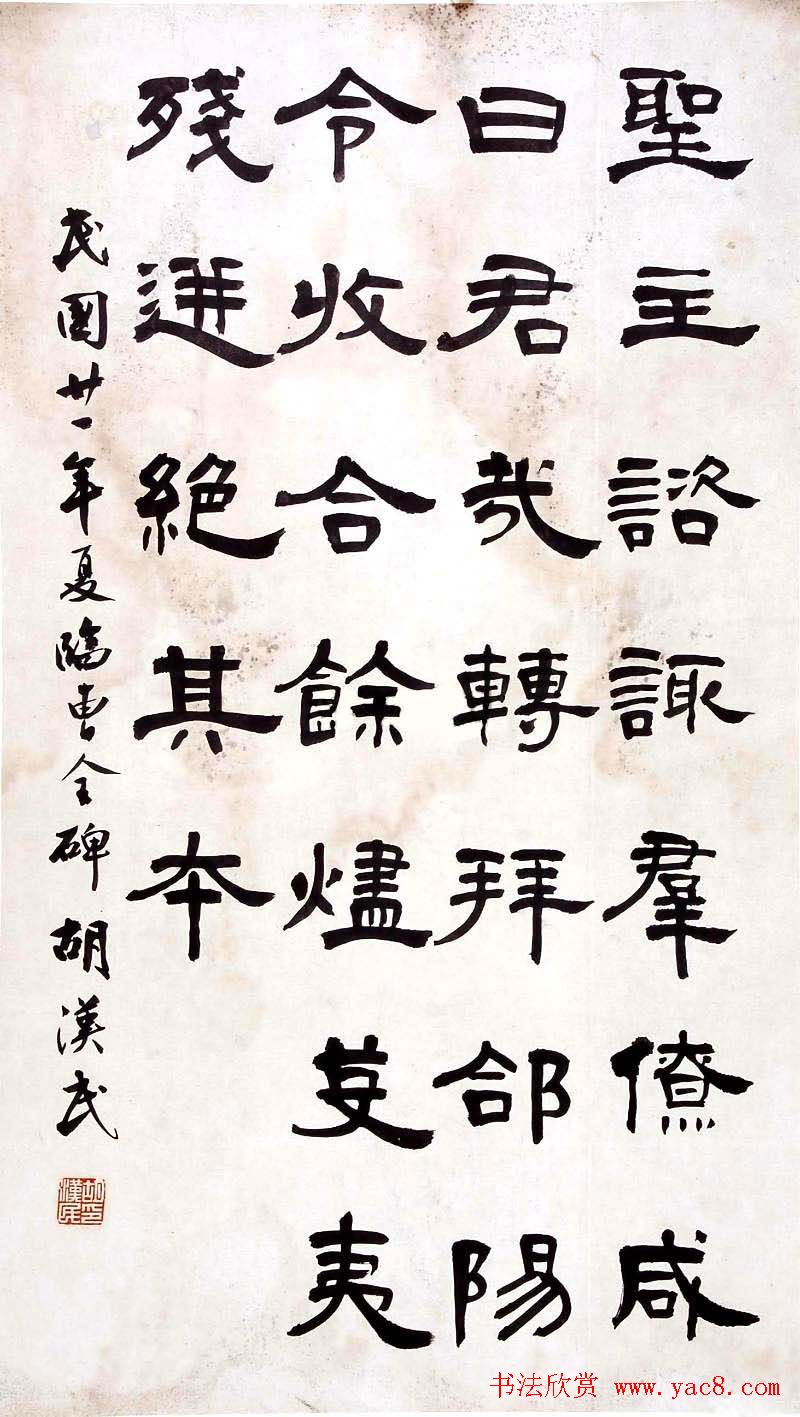 聖主諮諏羣僚咸
曰君哉轉拜郃陽
令收合餘燼芟夷
殘迸絕其本
民國廿一年夏臨曹全碑胡漢民
胡漢民印
书法欣赏 www.yac8.com